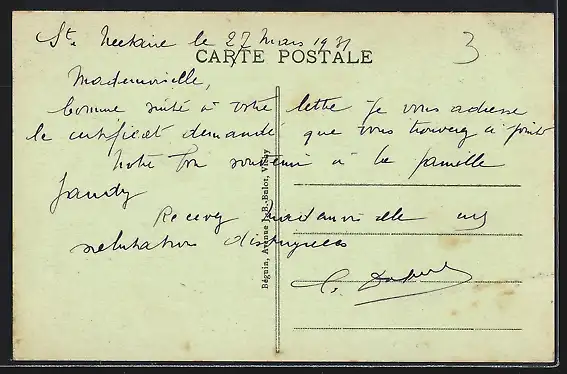 Ste Nectaire le 27 Mars 1931
3
CARTE POSTALE
Mademoiselle,
Comme suite à votre lettre Je vous adresse
le certificat demandé que vous trouverez à joint
Notre bon souvenir à la famille
Jandy
Recevez Mademoiselle mes
salutations distinguées
Béguin, Avenue P.-B.-Balot, Vichy